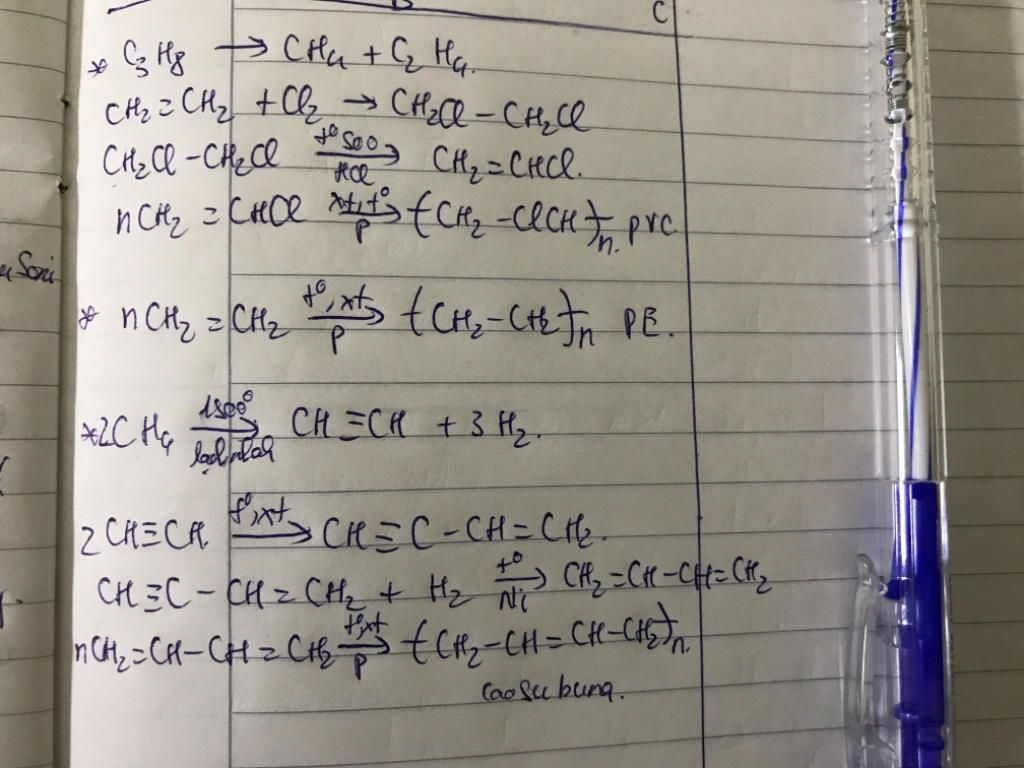 C
* C₃H₈ → CH₄ + C₂H₄.
CH₂=CH₂ + Cl₂ → CH₂Cl – CH₂Cl
CH₂Cl – CH₂Cl t° 500 → HCl CH₂=CHCl.
nCH₂=CHCl xt, t° → P (CH₂ – ClCH)n. PVC
* nCH₂=CH₂ t°, xt → P (CH₂–CH₂)n PE.
*2CH₄ 1500° → CH≡CH + 3H₂.
2CH≡CH t°, xt → CH≡C–CH=CH₂.
CH≡C–CH=CH₂ + H₂ t° → Ni CH₂=CH–CH=CH₂
nCH₂=CH–CH=CH₂ t°, xt → P (CH₂–CH=CH–CH₂)n.
cao su buna.